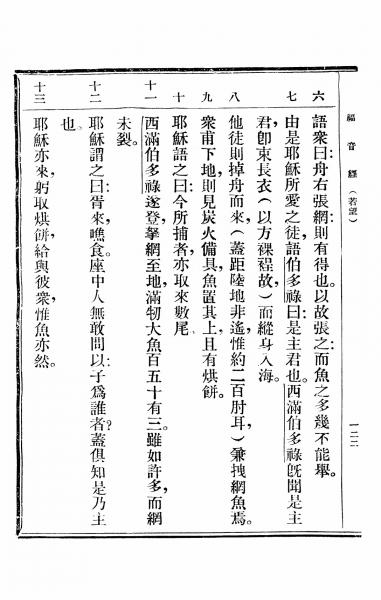 福音經 (若望) 一二二
六 語衆曰:舟右張網,則有得也。以故張之,而魚之多,幾不能舉。
七 由是耶穌所愛之徒,語伯多祿曰:是主君也。西滿伯多祿旣聞是主
君,卽束長衣(以方裸裎故)而縱身入海。
八 他徒則掉舟而來,(蓋距陸地非遙,惟約二百肘耳,)兼拽網魚焉。
九 衆甫下地,則見炭火備具,魚置其上,且有烘餅。
十 耶穌語之曰:今所捕者,亦取來數尾。
十一 西滿伯多祿遂登,拏網至地,滿牣大魚百五十有三。雖如許多,而網
未裂。
十二 耶穌謂之曰:胥來,噍食。座中人無敢問以:子爲誰者?蓋俱知是乃主
也。
十三 耶穌亦來,躬取烘餅,給與彼衆,惟魚亦然。